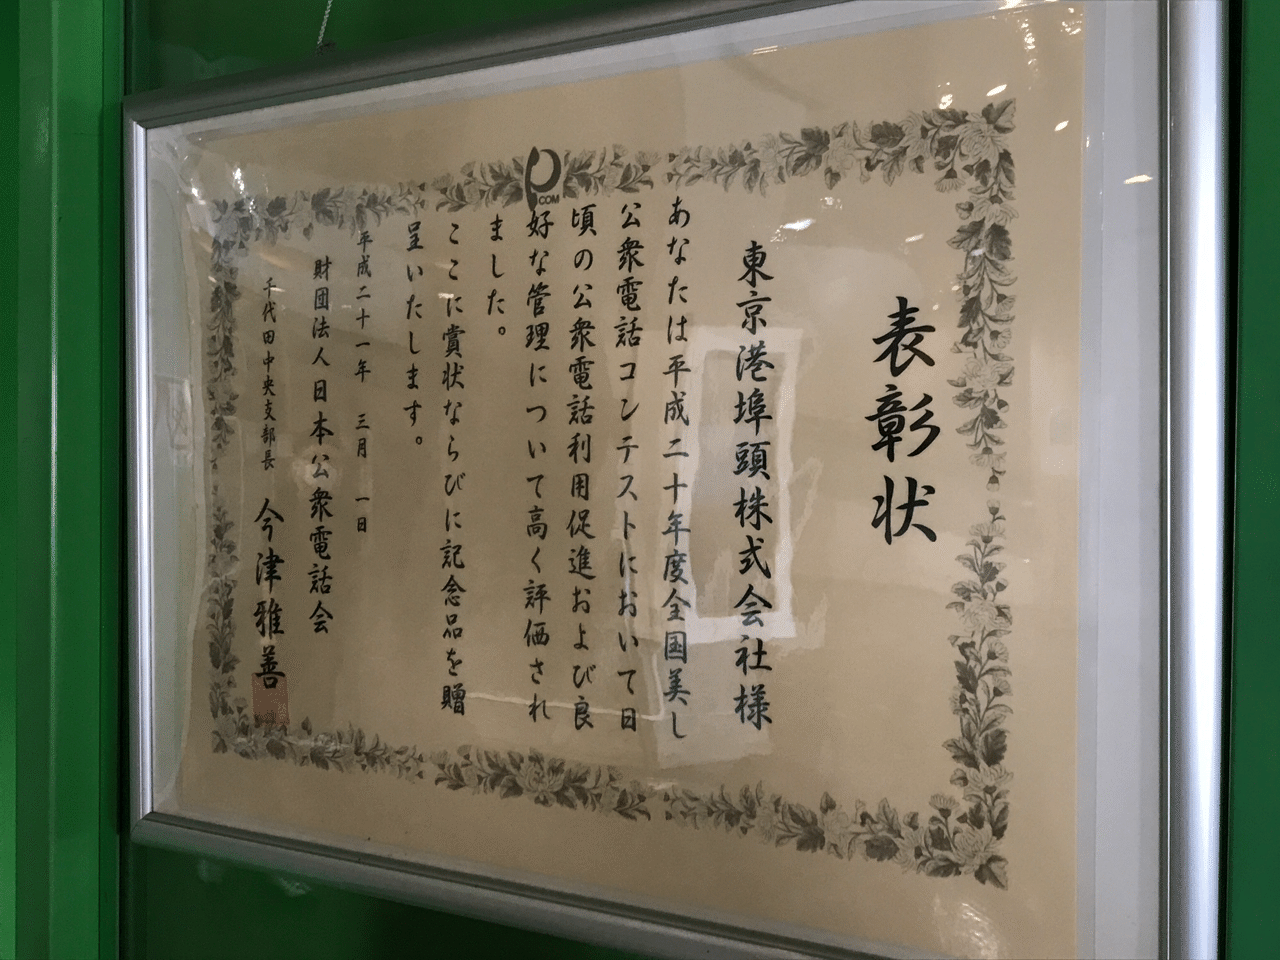 表彰状
東京港埠頭株式会社様
あなたは平成二十年度全国美し
公衆電話コンテストにおいて日
頃の公衆電話利用促進および良
好な管理について高く評価され
ました。
ここに賞状ならびに記念品を贈
呈いたします。
平成二十一年 三月 一日
財団法人日本公衆電話会
千代田中央支部長 今津雅善
P
COM